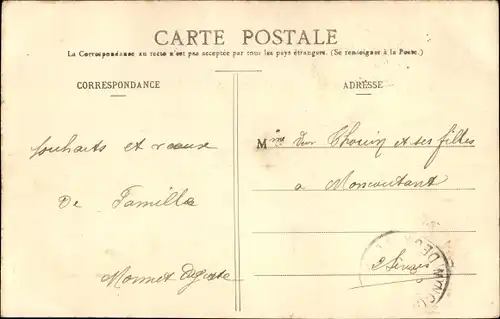 CARTE POSTALE
La Correspondance au recto n'est pas acceptée par tous les pays étrangers. (Se renseigner à la Poste.)
CORRESPONDANCE
ADRESSE
souhaits et vœux
De Famille
Monnet
Mme et ses filles
a Moncoutant
2 Sèvres